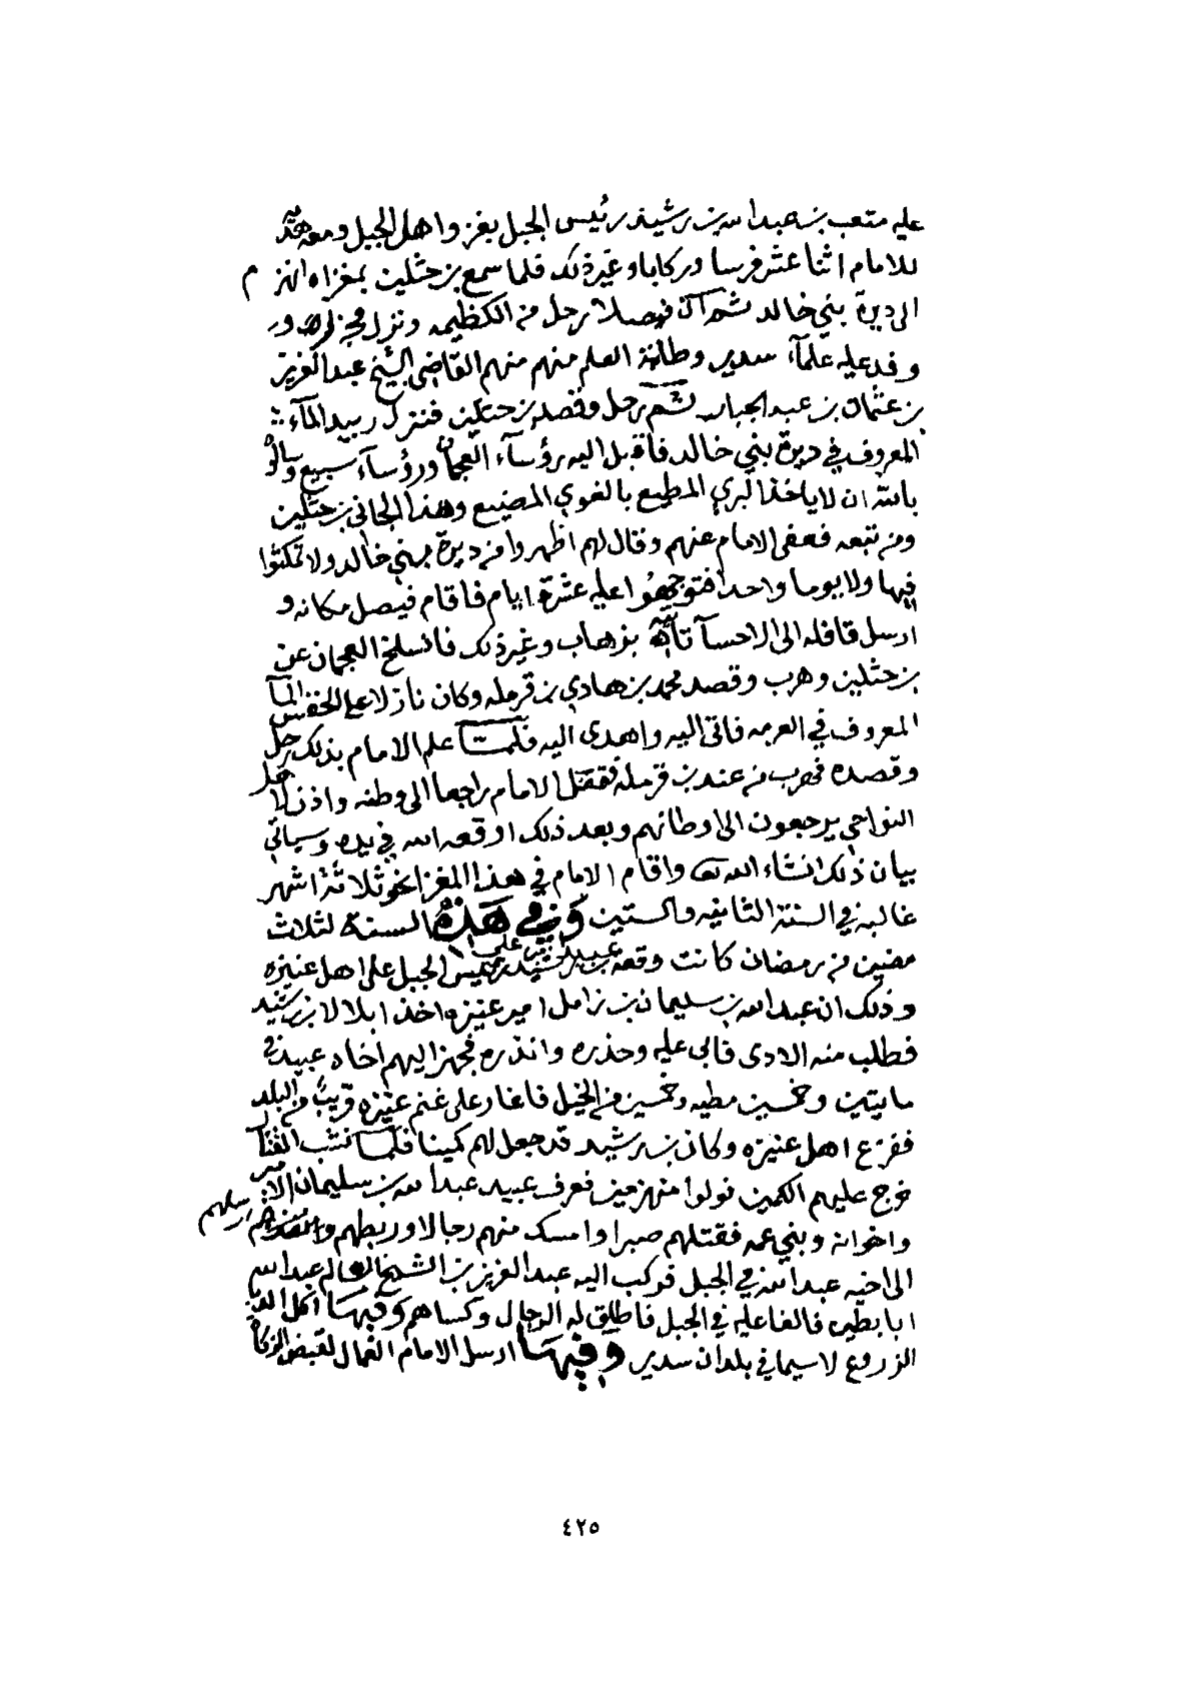 عليه متعب بن عبدالله بن رشيد رئيس الجبل بغزو اهل الجبل ومعه هدية
للامام اثنا عشر فرسا وركابا وغير ذلك فلما سمع بن حثلين بمغزاه انهزم
الى ديرة بني خالد ثم ان فيصلا رحل من الكظيمه ونزل مجزل
وفد عليه علمآء سدير وطلبة العلم منهم منهم القاضي الشيخ عبدالعزيز
بن عثمان بن عبدالجبار ثم رحل وقصد بن حثلين فنزل ربيد المآء
المعروف في ديرة بني خالد فاقبل اليه رؤسآء العجمان ورؤسآء سبيع وسالوه
بالله ان لا ياخذ البري المطيع بالغوي المضيع وهذا الجاني بن حثلين
ومن تبعه فعفى الامام عنهم وقال لهم اظهروا من ديرة بني خالد ولا تمكثوا
فيها ولا يوما واحدا فتوجهوا عليه عشرة ايام فاقام فيصل مكانه و
ارسل قافله الى الاحسآ تأتيه بزهاب وغير ذلك فانسلخ العجمان عن
بن حثلين وهرب وقصد محمد بن هادي بن قرمله وكان نازلا على الخفس المآ
المعروف في العرمه فاتى اليه واهدى اليه فلما علم الامام بذلك رحل
وقصده فهرب من عند بن قرمله فقفل الامام راجعا الى وطنه واذن لاهل
النواحي يرجعون الى اوطانهم وبعد ذلك اوقعه الله في يده وسياتي
بيان ذلك انشاء الله تعالى واقام الامام في هذا المغزا نحو ثلاثة اشهر
غالبه في السنة الثانيه والستين وفي هذه السنة لثلاث
مضين من رمضان كانت وقعة عبيد بن علي بن رشيد رئيس الجبل على اهل عنيزه
وذلك ان عبدالله بن سليمان بن زامل امير عنيزه اخذ ابلا لابن رشيد
فطلب منه الادى فابى عليه وحذره وانذره فجهز اليهم اخاه عبيد في
مايتين وخمسين مطيه وخمسين من الخيل فاغار على غنم عنيزه قريب من البلد
ففزع اهل عنيزه وكان بن رشيد قد جعل لهم كمينا فلما نشب القتال
خرج عليهم الكمين فولوا منهزمين فعرف عبيد عبدالله بن سليمان الامير
واخوانه وبني عمه فقتلهم صبرا وامسك منهم رجالا وربطهم وارسلهم
الى اخيه عبدالله في الجبل فركب اليه عبدالعزيز بن الشيخ العالم عبدالله
ابا بطين فالفا عليه في الجبل فاطلق له الرجال وكساهم وفيها اكل الدبا
الزروع لا سيما في بلدان سدير وفيها ارسل الامام العمال لقبض الزكاة
٤٢٥